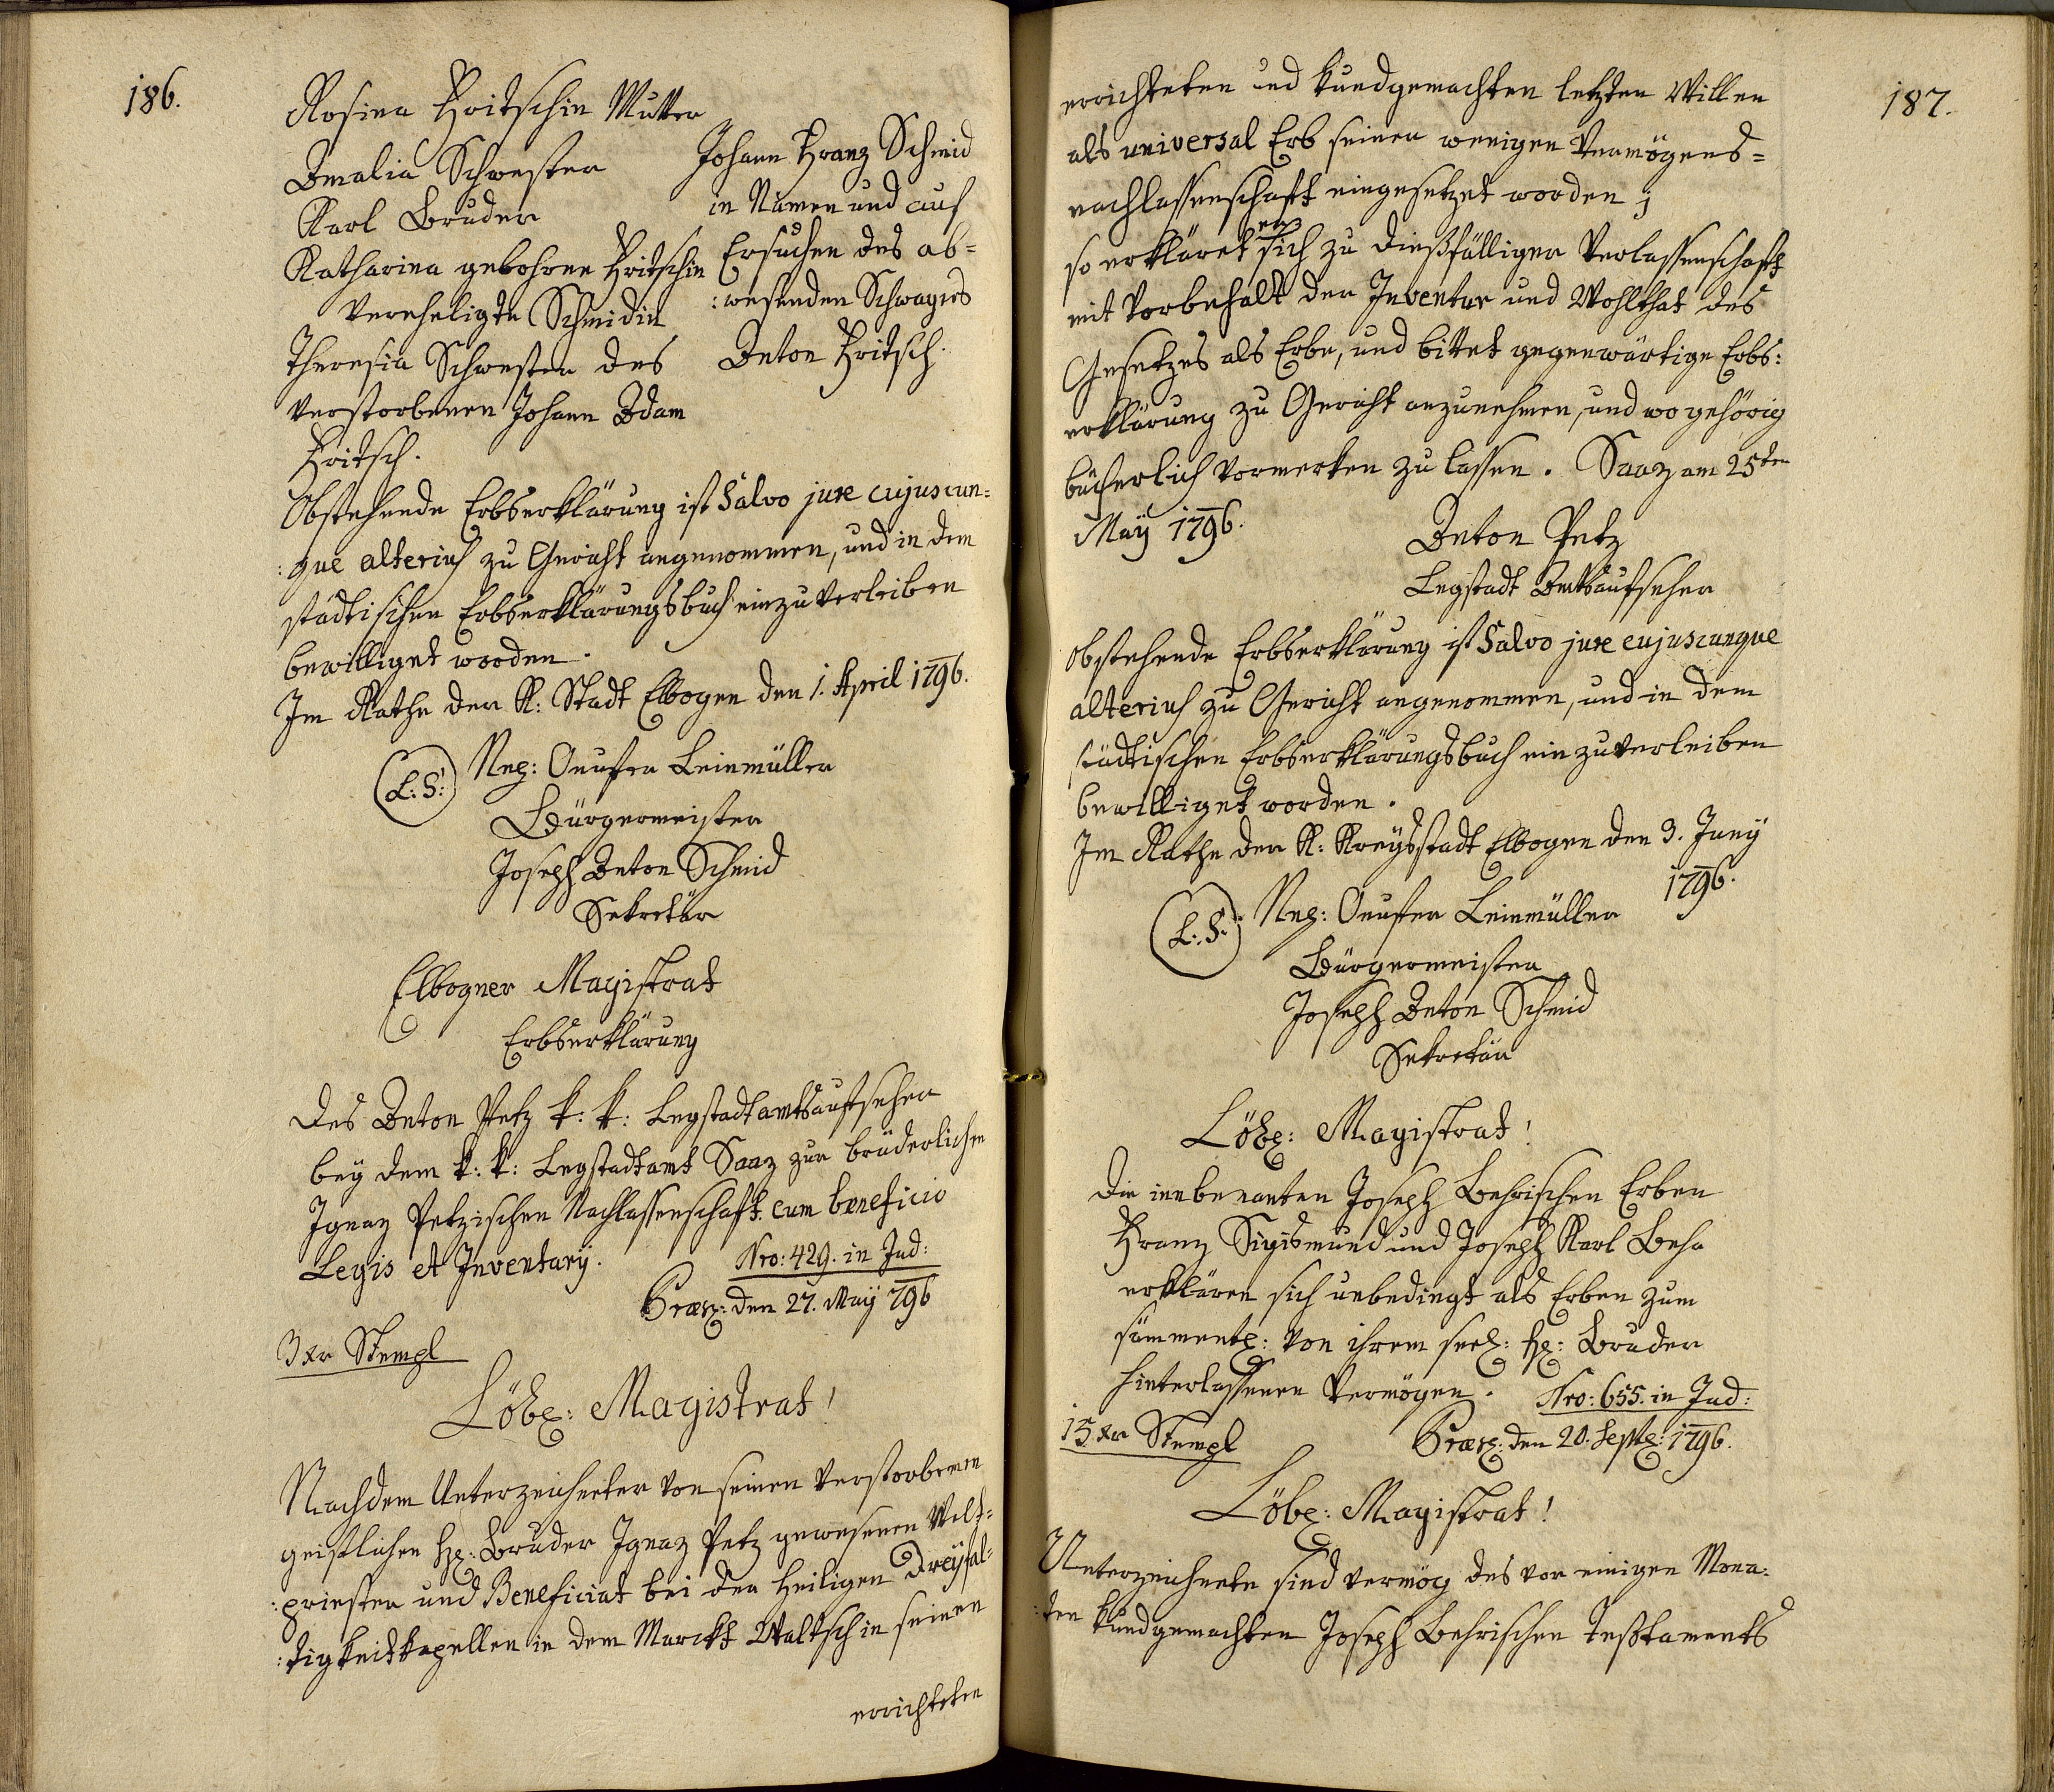 186.
Rosina Fritschin Mutter
Amalia Schwester
Karl Bruder
Katharina gebohrne Fritschin
verehligte Schmidin
Theresia Schwester des
verstorbenen Johann Adam
Fritsch.
Johann Franz Schmid
in Namen und auf
Ersuchen des ab=
:wesenden Schwagers
Anton Fritsch.
Obstehende Erbserklärung ist Salvo jure cujuscun=
:que alterius zu Gericht angenommen, und in dem
städtischen Erbserklärungsbuch einzuverleiben
bewilliget worden.
Im Rathe der K: Stadt Elbogen den 1. April 1796.
(L:S:) Nep: Onufer Leinmüller
Bürgermeister
Joseph Anton Schmid
Sekretär
Elbogner Magistrat
Erbserklärung
des Anton Petz k: k: Legstadtamtsaufseher
bey dem k: k: Legstadtamt Saaz zur brüderlichen
Ignaz Petzischen Nachlassenschaft cum beneficio
Legis et Inventarÿ.
Nro: 429. in Jud:
Præs: den 27. Maÿ 796
3 xr Stempl
Löbl: Magistrat!
Nachdem Unterzeichneter von seinen verstorbenen
geistlichen H: Bruder Ignaz Petz gewesenen Welt=
:priester und Beneficiat bei der Heiligen Dreyfal=
:tigkeitkapellen in dem Marckt Waltsch in seinen
errichteten
187.
errichteten und kundgemachten letzten Willen
als universal Erb seiner wenigen Vermögens=
nachlassenschaft eingesetzet worden;
so erkläret er sich zu dießfälliger Verlassenschaft
mit Vorbehalt der Inventur und Wohlthat des
Gesetzes als Erbe, und bittet gegenwärtige Erbs:
erklärung zu Gericht anzunehmen, und wo gehörig
bücherlich vormerken zu lassen. Saaz am 25ten
Maÿ 1796.
Anton Petz
Legstadt Amtsaufseher
Obstehende Erbserklärung ist Salvo jure cujuscunque
alterius zu Gericht angenommen, und in dem
städtischen Erbserklärungsbuch einzuverleiben
bewilliget worden.
Im Rathe der K: Kreÿsstadt Elbogen den 3. Junÿ
1796.
(L:S:) Nep: Onufer Leinmüller
Bürgermeister
Joseph Anton Schmid
Sekretär
Löbl: Magistrat!
Die innbenanten Joseph Behrischen Erben
Franz Sigismund und Joseph Karl Behr
erklären sich unbedingt als Erben zum
sämmentl: von ihrem seel: H: Bruder
hinterlassenen Vermögen.
Nro: 655. in Jud:
Præs: den 20. Septl: 1796.
15 xr Stempl
Löbl: Magistrat!
Unterzeichnete sind vermög des vor einigen Mona:
:ten kundgemachten Joseph Behrischen Testaments